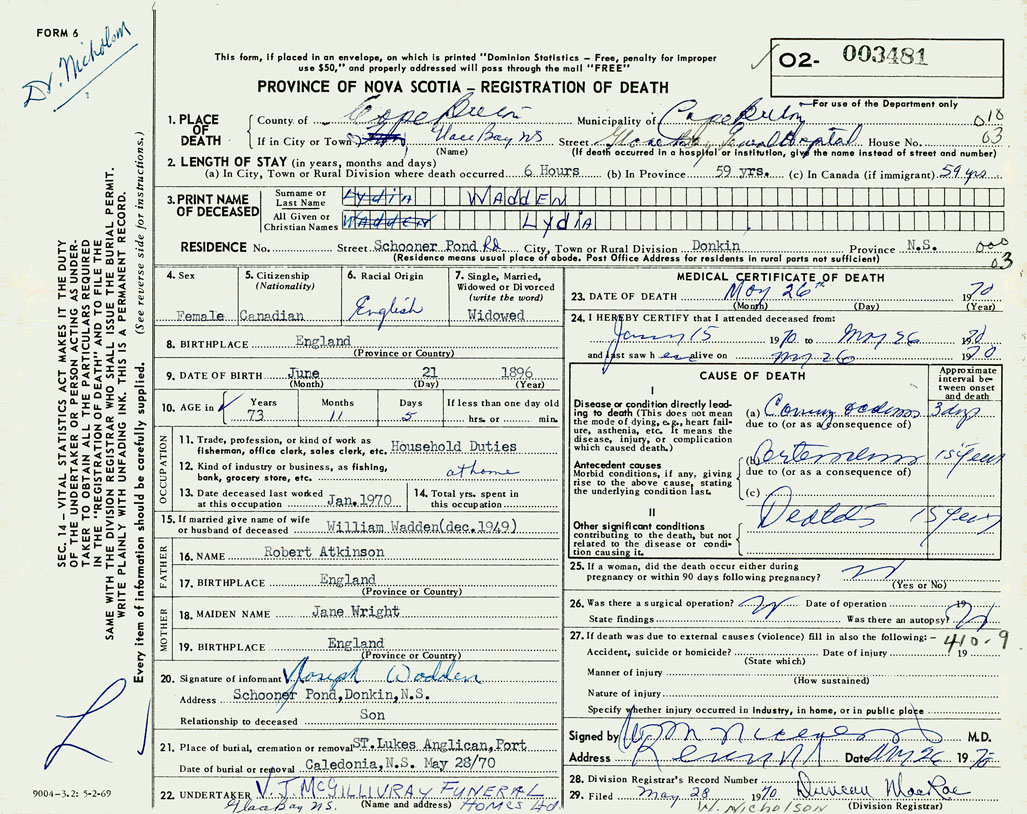 FORM 6
Dr. Nicholson
This form, if placed in an envelope, on which is printed "Dominion Statistics – Free, penalty for improper
use $50," and properly addressed will pass through the mail "FREE"
O2- 003481
For use of the Department only
PROVINCE OF NOVA SCOTIA – REGISTRATION OF DEATH
1. PLACE OF DEATH County of Cape Breton Municipality of Cape Breton 010
If in City or Town Glace Bay NS Street General Hospital House No. 03
(Name) (If death occurred in a hospital or institution, give the name instead of street and number)
2. LENGTH OF STAY (in years, months and days)
(a) In City, Town or Rural Division where death occurred 6 Hours (b) In Province 59 yrs. (c) In Canada (if immigrant) 59 yrs
3. PRINT NAME OF DECEASED Surname or Last Name LYDIA WADDEN
All Given or Christian Names WADDEN LYDIA
RESIDENCE No. Street Schooner Pond Rd City, Town or Rural Division Donkin Province N.S. 000
(Residence means usual place of abode. Post Office Address for residents in rural parts not sufficient) 03
4. Sex Female
5. Citizenship (Nationality) Canadian
6. Racial Origin English
7. Single, Married, Widowed or Divorced (write the word) Widowed
8. BIRTHPLACE England
(Province or Country)
9. DATE OF BIRTH June 21 1896
(Month) (Day) (Year)
10. AGE in Years 73 Months 11 Days 5 If less than one day old hrs. or min.
OCCUPATION
11. Trade, profession, or kind of work as fisherman, office clerk, sales clerk, etc. Household Duties
12. Kind of industry or business, as fishing, bank, grocery store, etc. at home
13. Date deceased last worked at this occupation Jan. 1970
14. Total yrs. spent in this occupation
15. If married give name of wife or husband of deceased William Wadden(dec.1949)
FATHER
16. NAME Robert Atkinson
17. BIRTHPLACE England
(Province or Country)
MOTHER
18. MAIDEN NAME Jane Wright
19. BIRTHPLACE England
(Province or Country)
20. Signature of informant Joseph Wadden
Address Schooner Pond,Donkin,N.S.
Relationship to deceased Son
21. Place of burial, cremation or removal ST.Lukes Anglican,Port
Date of burial or removal Caledonia,N.S. May 28/70
22. UNDERTAKER V. J. McGILLIVRAY FUNERAL
Glace Bay NS. (Name and address) HOMES Ltd
MEDICAL CERTIFICATE OF DEATH
23. DATE OF DEATH May 26th 1970
(Month) (Day) (Year)
24. I HEREBY CERTIFY that I attended deceased from:
Jany 15 1970 to May 26 1970
and last saw her alive on May 26 1970
CAUSE OF DEATH
Approximate interval between onset and death
I
Disease or condition directly leading to death (This does not mean the mode of dying, e.g., heart failure, asthenia, etc. It means the disease, injury, or complication which caused death.)
(a) Coronary 3 days
due to (or as a consequence of)
Antecedent causes
Morbid conditions, if any, giving rise to the above cause, stating the underlying condition last.
(b) 15 years
due to (or as a consequence of)
(c)
II
Other significant conditions contributing to the death, but not related to the disease or condition causing it.
15 years
25. If a woman, did the death occur either during pregnancy or within 90 days following pregnancy?
(Yes or No)
26. Was there a surgical operation? Date of operation 19
State findings Was there an autopsy?
27. If death was due to external causes (violence) fill in also the following: – 410-9
Accident, suicide or homicide? Date of injury 19
(State which)
Manner of injury
(How sustained)
Nature of injury
Specify whether injury occurred in industry, in home, or in public place
Signed by M.D.
Address Date May 26 1970
28. Division Registrar's Record Number
29. Filed May 28 1970 Duncan MacRae
W. NICHOLSON (Division Registrar)
SEC. 14 – VITAL STATISTICS ACT MAKES IT THE DUTY
OF THE UNDERTAKER OR PERSON ACTING AS UNDER-
TAKER TO OBTAIN ALL THE PARTICULARS REQUIRED
IN THE "REGISTRATION OF DEATH" AND TO FILE THE
SAME WITH THE DIVISION REGISTRAR WHO SHALL ISSUE THE BURIAL PERMIT.
WRITE PLAINLY WITH UNFADING INK. THIS IS A PERMANENT RECORD.
Every item of information should be carefully supplied. (See reverse side for instructions.)
9004-3.2: 5-2-69